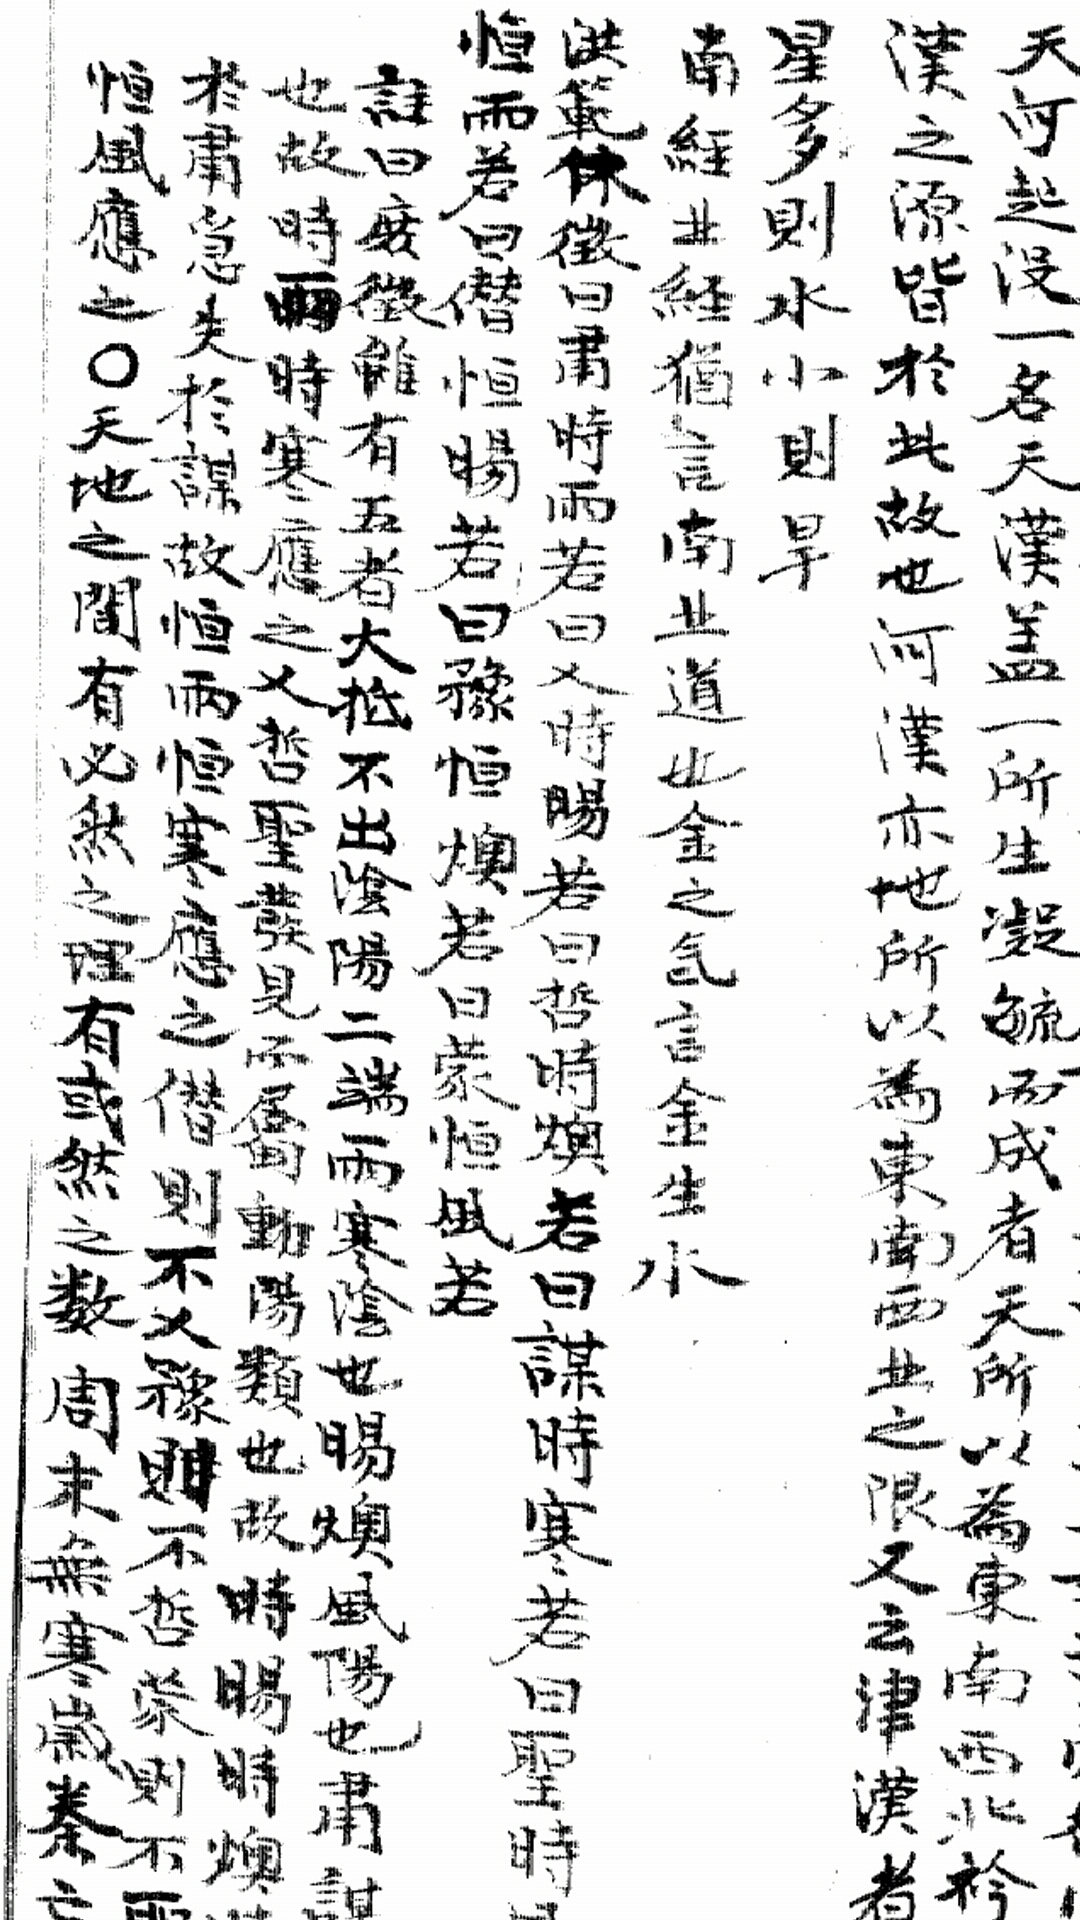 天河起没一名天漢盖一所生凝毓而成者天所以為東南西北衿
漢之源皆於此故也何漢亦地所以為東南西北之限又云津漢者
星多則水小則旱
南經北經猶言南北道也金之氣言金生水
洪範休徵曰肅時雨若曰乂時暘若曰哲時燠若曰謀時寒若曰聖時
恒雨若曰僭恒暘若曰豫恒燠若曰蒙恒風若
註曰庶徵雖有五者大抵不出陰陽二端雨寒陰也暘燠風陽也肅謀
也故時雨時寒應之乂哲聖發見而屬動陽類也故時暘時燠
於肅急失於謀故恒雨恒寒應之僭則不乂豫則不哲蒙則不聖
恒風應之〇天地之間有必然之理有或然之数周末無寒歲秦亡